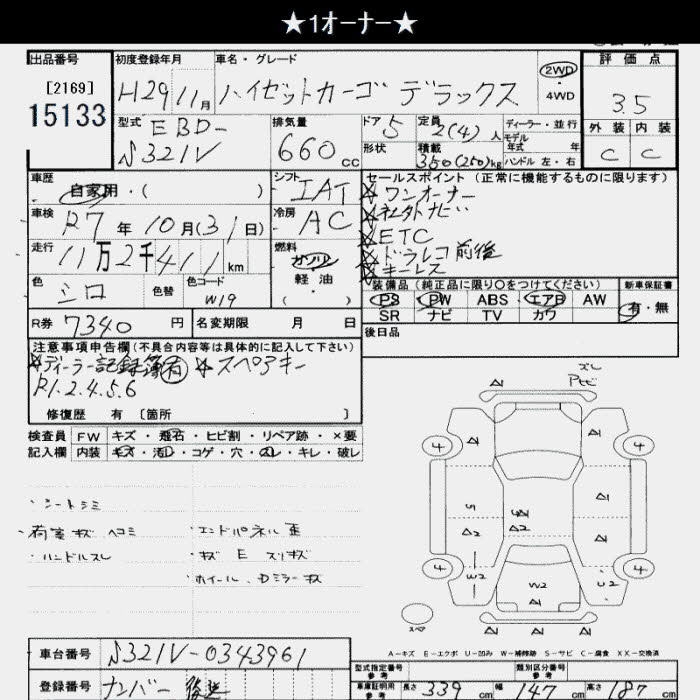 ★1オーナー★
出品番号 初度登録年月 車名・グレード 評価点
[2169]
15133
H29 11月 ハイゼットカーゴ デラックス 2WD ・4WD 3.5
型式 排気量 ドア 定員 ディーラー・並行
EBD-
S321V 660cc 5 2(4)人 モデル年式 年
形状 積載 350(250)kg ハンドル 左・右
外装 内装
C C
車歴 シフト セールスポイント(正常に機能するものに限ります)
自家用・( ) IAT ☆ワンオーナー
車検 冷房 ☆社外ナビ
R7年10月(31日) AC ☆ETC
走行 燃料 ☆ドラレコ前後
11万2千411km ガソリン ☆キーレス
軽油
( )
色 色替 色コード
シロ W19
装備品(純正品に限り○をつけてください) 新車保証書
PS PW ABS エアB AW 有・無
SR ナビ TV カワ
R券 7340円 名変期限 月 日
後日品
注意事項申告欄(不具合内容等は具体的に記入して下さい)
☆ディーラー記録簿有 ☆スペアキー
R1.2.4.5.6
修復歴 有 〔箇所 〕
検査員 FW キズ・飛石・ヒビ割・リペア跡・×要
記入欄 内装 キズ・汚レ・コゲ・穴・スレ・キレ・破レ
・シートシミ
・荷室キズ ヘコミ
・ハンドルスレ
・エンドパネル歪
・キズ E スリキズ
ホイール、Dミラーキズ
ズレ
Pセビ
A1
4 A1 4
A1
S A1
A2 A2 A1
4 W2 W2 U2 4
A1
スペア A1 A1
A-キズ E-エクボ U-凹み W-補修跡 S-サビ C-腐食 XX-交換済
車台番号 S321V-0343961
登録番号 ナンバー
型式指定番号 参考 類別区分番号 参考
車庫証明用 参考 長さ 339cm 幅 147cm 高さ 187cm